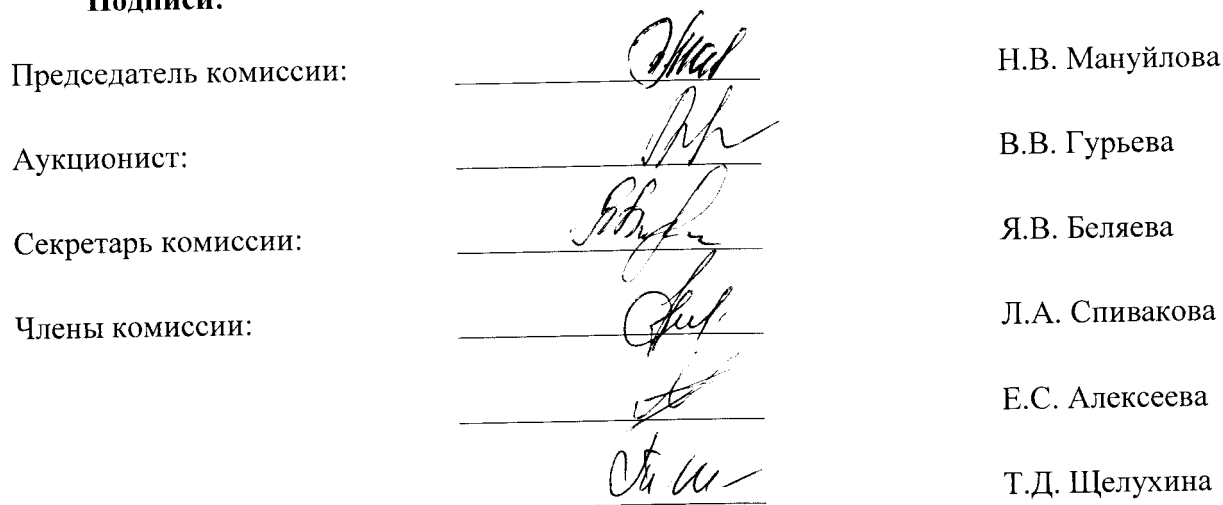 Подписи:
Председатель комиссии: Н.В. Мануйлова
Аукционист: В.В. Гурьева
Секретарь комиссии: Я.В. Беляева
Члены комиссии: Л.А. Спивакова
Е.С. Алексеева
Т.Д. Щелухина